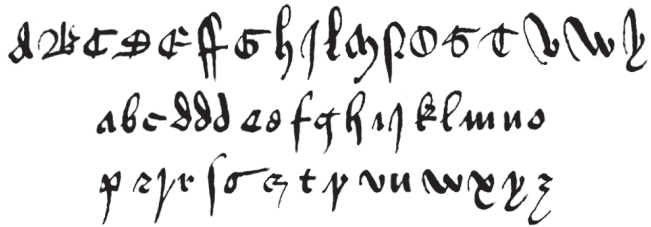 A B C D E ff G h J L M P O S T V W Y
a b c d d d e e f g h i j k l m n o
p r r r ſ s s t v v u w x y z